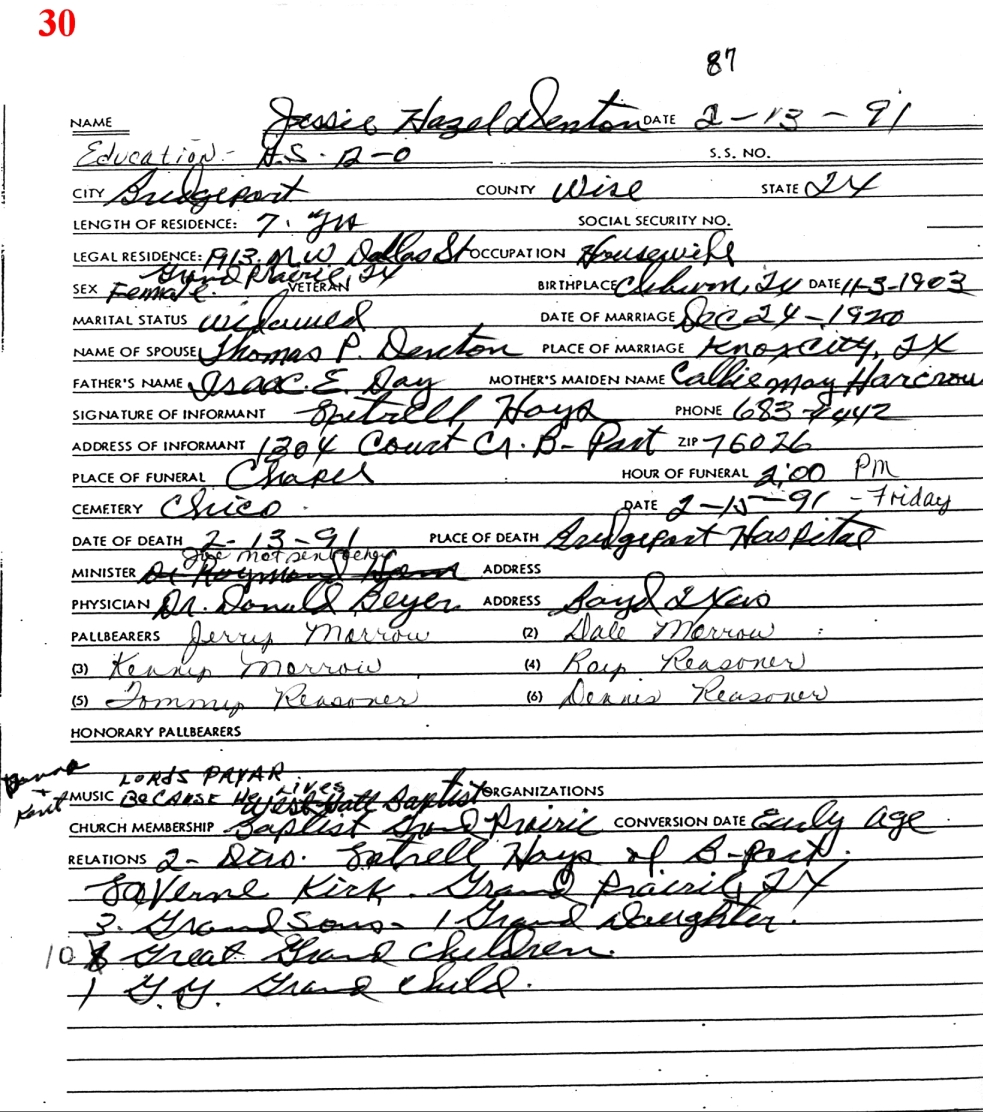 30
87
NAME Jessie Hazel Denton DATE 2-13-91
Education - H.S. 12-0 S.S. NO.
CITY Bridgeport COUNTY Wise STATE TX
LENGTH OF RESIDENCE: 7. yrs SOCIAL SECURITY NO.
LEGAL RESIDENCE: 913. N.W Dallas St OCCUPATION Housewife
Grand Prairie, TX
SEX Female. VETERAN BIRTHPLACE TX DATE 11-3-1903
MARITAL STATUS widowed DATE OF MARRIAGE Dec 24-1920
NAME OF SPOUSE Thomas P. Denton PLACE OF MARRIAGE Knox City, TX
FATHER'S NAME Isaac. E. Day MOTHER'S MAIDEN NAME Callie May Harcrow
SIGNATURE OF INFORMANT Hays PHONE 683-2442
ADDRESS OF INFORMANT 1304 Court Cr. B-Port ZIP 76026
PLACE OF FUNERAL Chapel HOUR OF FUNERAL 2:00 PM
CEMETERY Chico. DATE 2-15-91 - Friday
DATE OF DEATH 2-13-91 PLACE OF DEATH Bridgeport Hospital
Joe
MINISTER Dr Raymond ADDRESS
PHYSICIAN Dr. Donald Beyer ADDRESS Boyd Texas
PALLBEARERS Jerry Morrow (2) Dale Morrow
(3) Kenny Morrow (4) Roy Reasoner
(5) Tommy Reasoner (6) Dennis Reasoner
HONORARY PALLBEARERS
LORDS PAYAR
Kent MUSIC BECAUSE He Lives ORGANIZATIONS
Baptist
CHURCH MEMBERSHIP Baptist Grand Prairie CONVERSION DATE Early age
RELATIONS 2- Dtrs. Hays of B-Port.
LaVerne Kirk. Grand Prairie, TX
3. Grand Sons - 1 Grand Daughter.
10 8 Great Grand Children.
1 G.G. Grand Child.